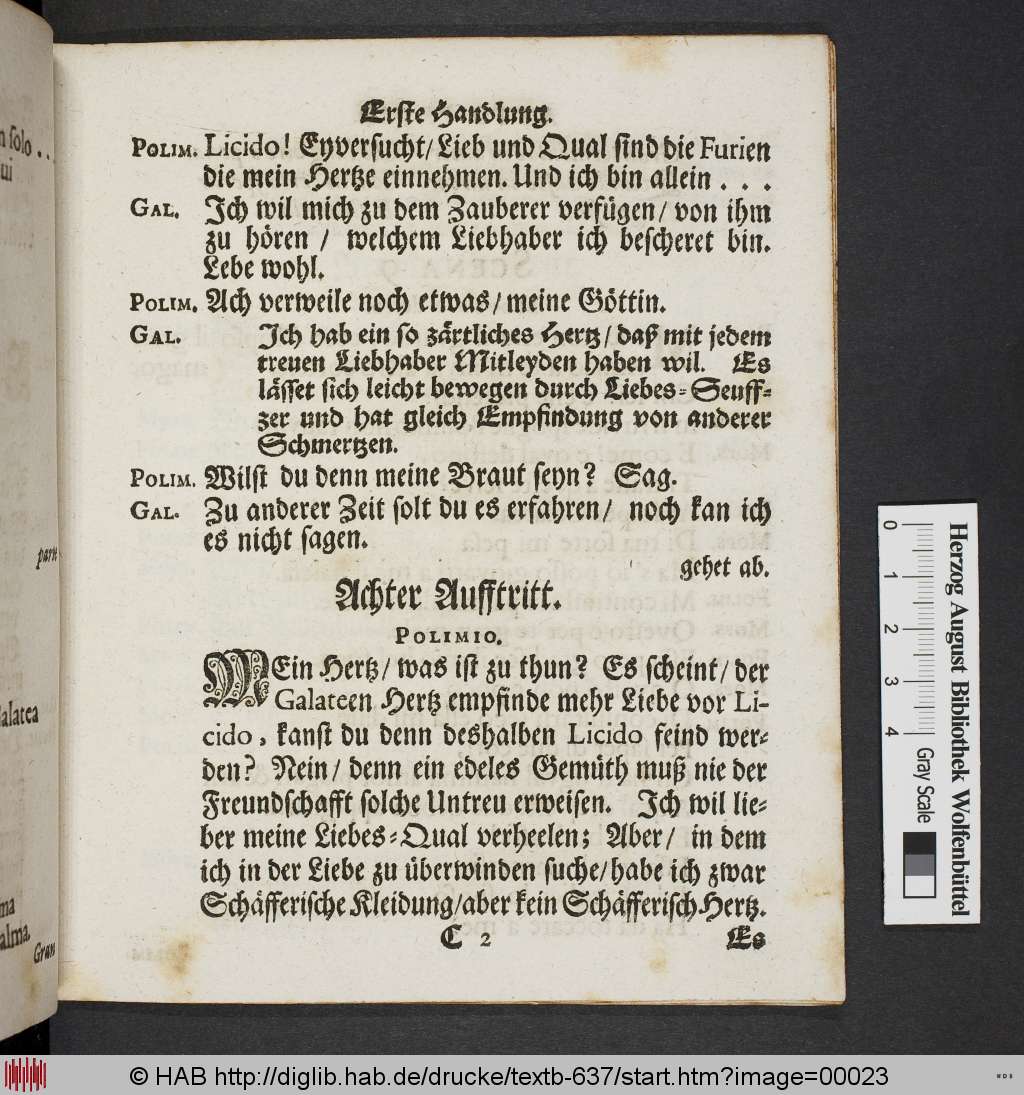 Erste Handlung.
POLIM. Licido! Eyversucht/ Lieb und Qual sind die Furien
die mein Hertze einnehmen. Und ich bin allein . . .
GAL. Ich wil mich zu dem Zauberer verfügen/ von ihm
zu hören / welchem Liebhaber ich bescheret bin.
Lebe wohl.
POLIM. Ach verweile noch etwas/ meine Göttin.
GAL. Ich hab ein so zärtliches Hertz/ daß mit jedem
treuen Liebhaber Mitleyden haben wil. Es
lässet sich leicht bewegen durch Liebes-Seuff-
zer und hat gleich Empfindung von anderer
Schmertzen.
POLIM. Wilst du denn meine Braut seyn? Sag.
GAL. Zu anderer Zeit solt du es erfahren/ noch kan ich
es nicht sagen.
gehet ab.
Achter Aufftritt.
POLIMIO.
MEin Hertz/ was ist zu thun? Es scheint/ der
Galateen Hertz empfinde mehr Liebe vor Li-
cido, kanst du denn deshalben Licido feind wer-
den? Nein/ denn ein edeles Gemüth muß nie der
Freundschafft solche Untreu erweisen. Ich wil lie-
ber meine Liebes-Qual verheelen; Aber/ in dem
ich in der Liebe zu überwinden suche/ habe ich zwar
Schäfferische Kleidung/ aber kein Schäfferisch Hertz.
C 2 Es
n solo . . .
ui
parte
Galatea
ma
alma.
Gran
0 1 2 3 4
Herzog August Bibliothek Wolfenbüttel
Gray Scale
© HAB http://diglib.hab.de/drucke/textb-637/start.htm?image=00023